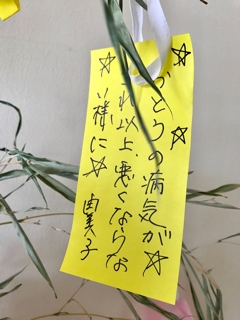 ☆かとうの病気が☆
れ以上、悪くならな
い様に☆
由美子